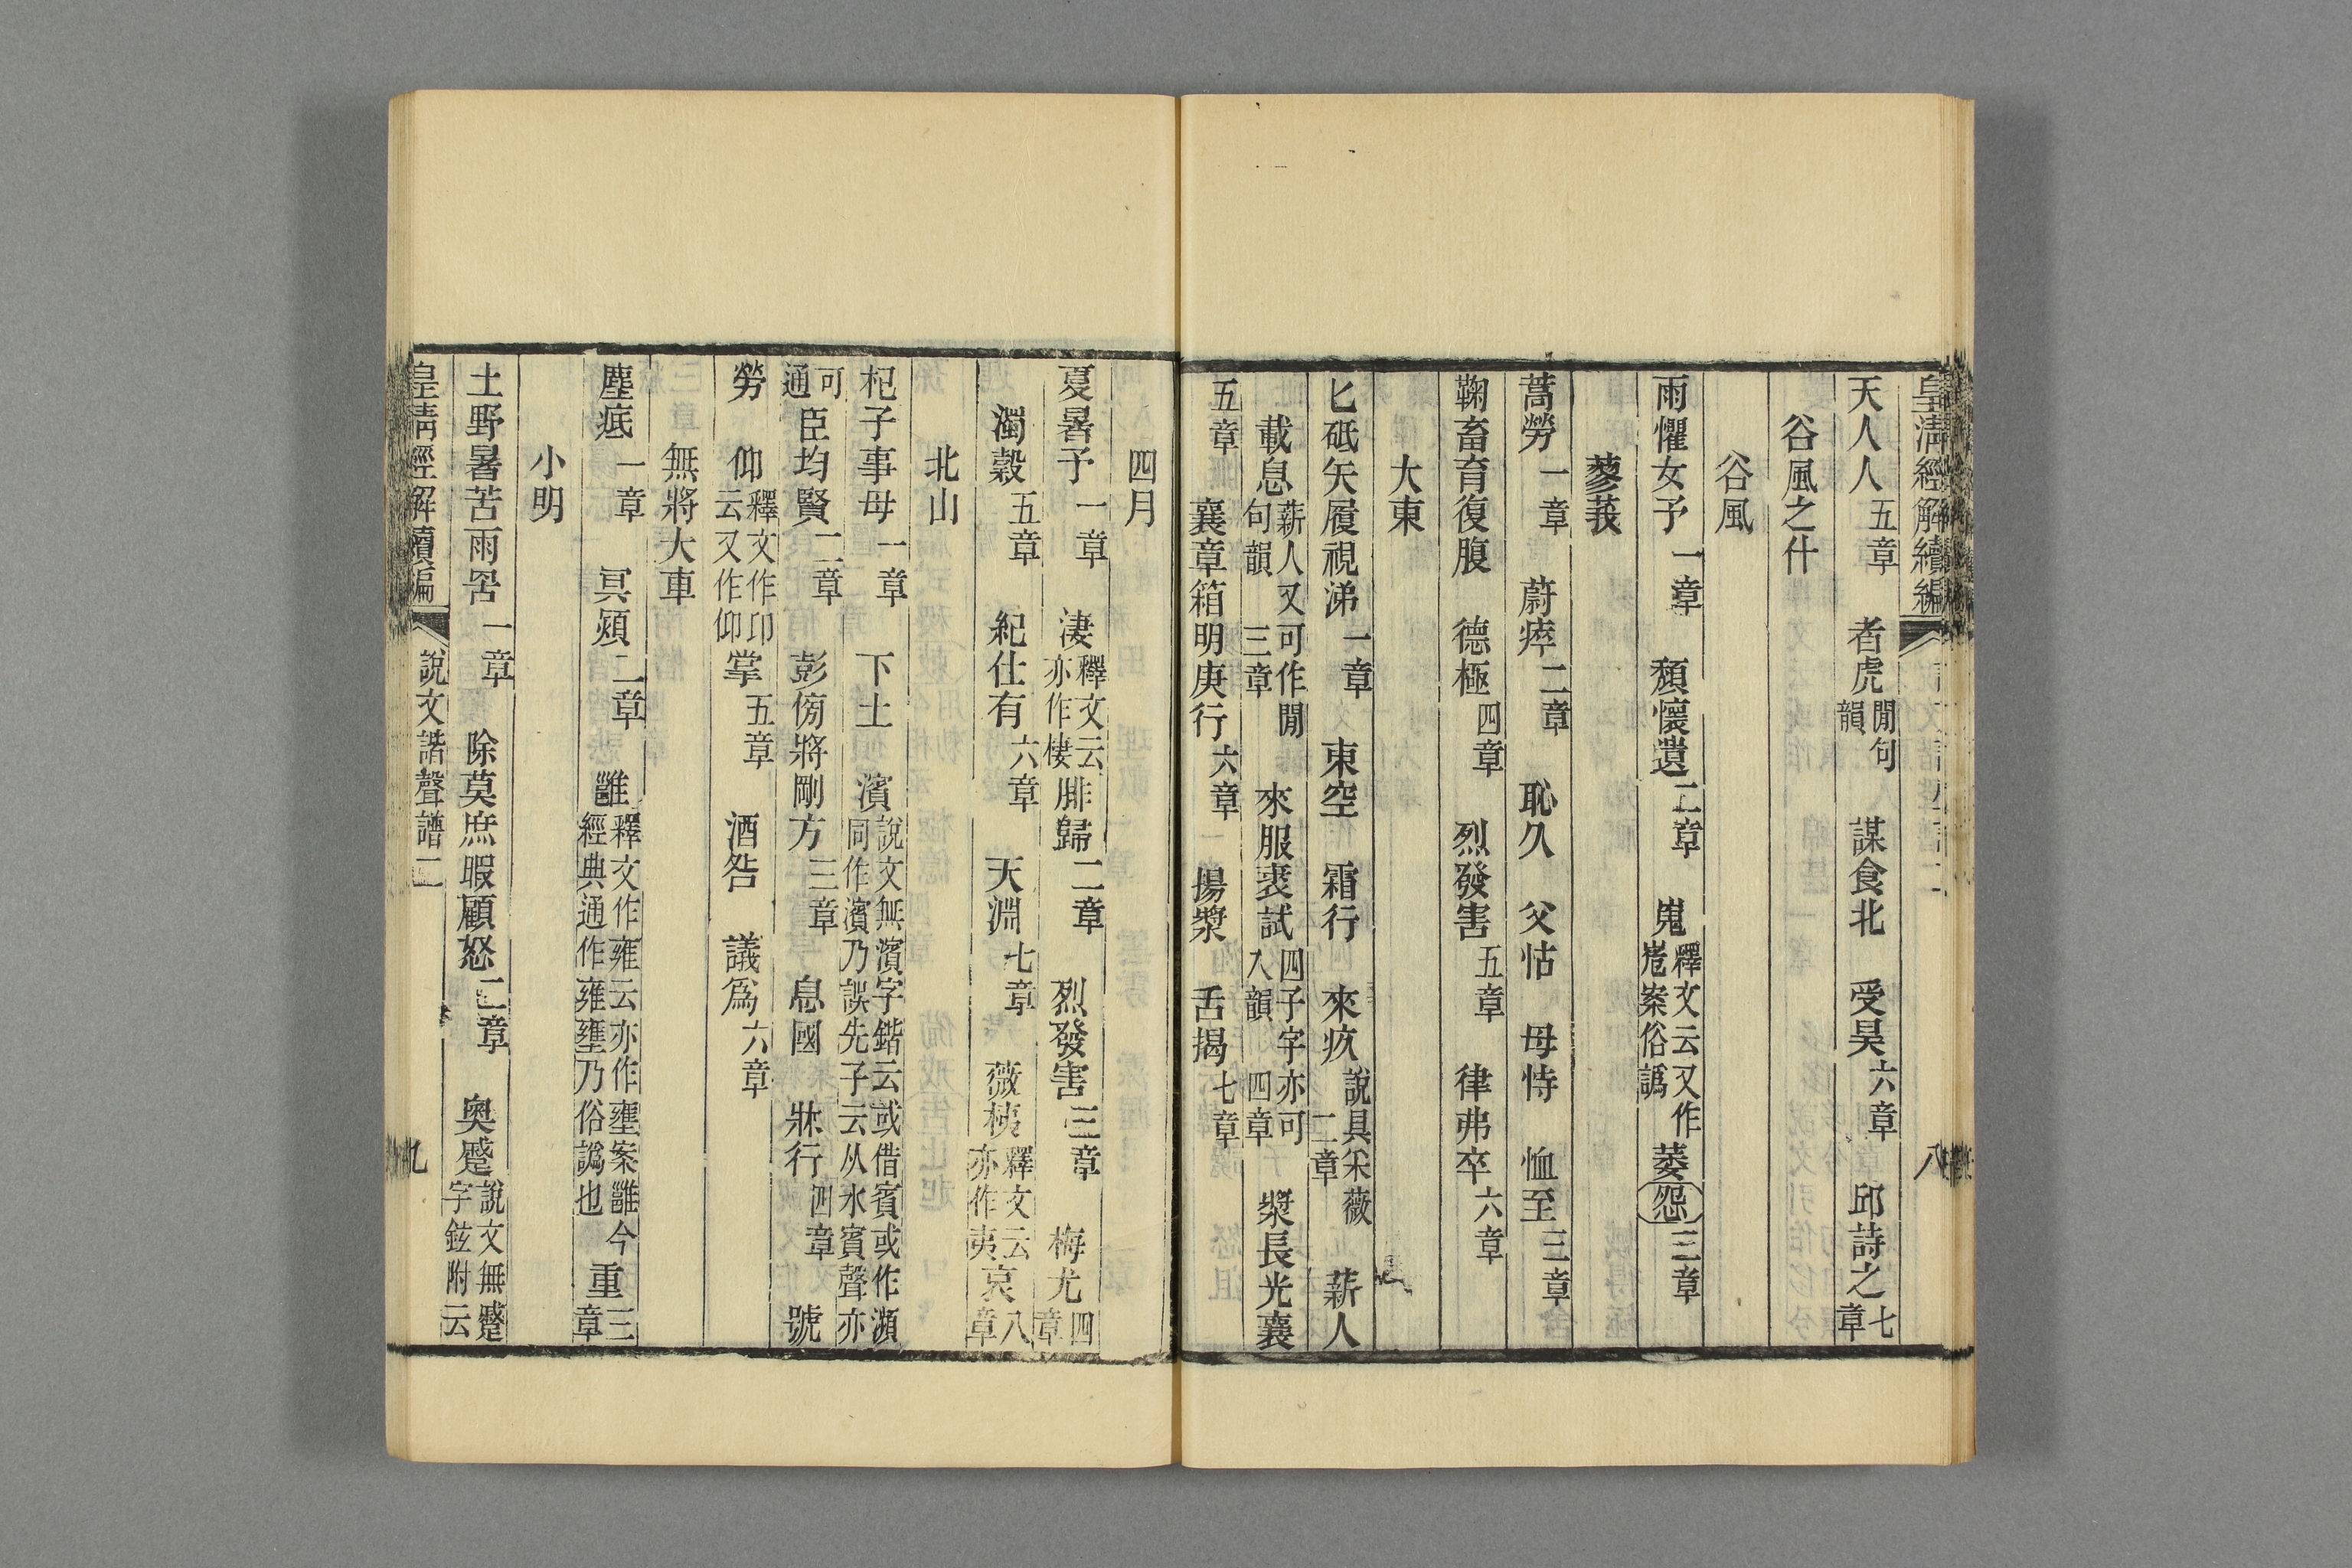 皇清經解續編
八
天人人五章　者虎閒句韻　謀食北　受昊六章　邱詩之七章
谷風之什
谷風
雨懼女予一章　頹懷遺二章　嵬釋文云又作嵬案俗譌萎怨三章
蓼莪
蒿勞一章　蔚瘁二章　恥久　父怙　母恃　恤至三章
鞠畜育復腹　德極四章　烈發害五章　律弗卒六章
大東
匕砥矢履視涕一章　東空　霜行　來疚說具采薇二章　薪人
載息薪人又可作閒句韻三章　來服裘試四子字亦可入韻四章　漿長光襄
五章　襄章箱明庚行六章　揚漿　舌揭七章
四月
夏暑予一章　淒釋文云亦作棲腓歸二章　烈發害三章　梅尤四章
濁穀五章　紀仕有六章　天淵七章　薇桋釋文云亦作荑哀八章
北山
杞子事母一章　下土　濱說文無濱字鍇云或借賓或作瀕同作濱乃誤先子云从水賓聲亦
可通臣均賢二章　彭傍將剛方三章　息國　牀行四章　號
勞　仰釋文作卬云又作仰掌五章　酒咎　議爲六章
無將大車
塵疷一章　冥熲二章　雝釋文作雍云亦作壅案雝今經典通作雍壅乃俗譌也重三章
小明
土野暑苦雨罟一章　除莫庶暇顧怒二章　奧蹙說文無蹙字鉉附云
皇清經解續編
說文諧聲譜二
九